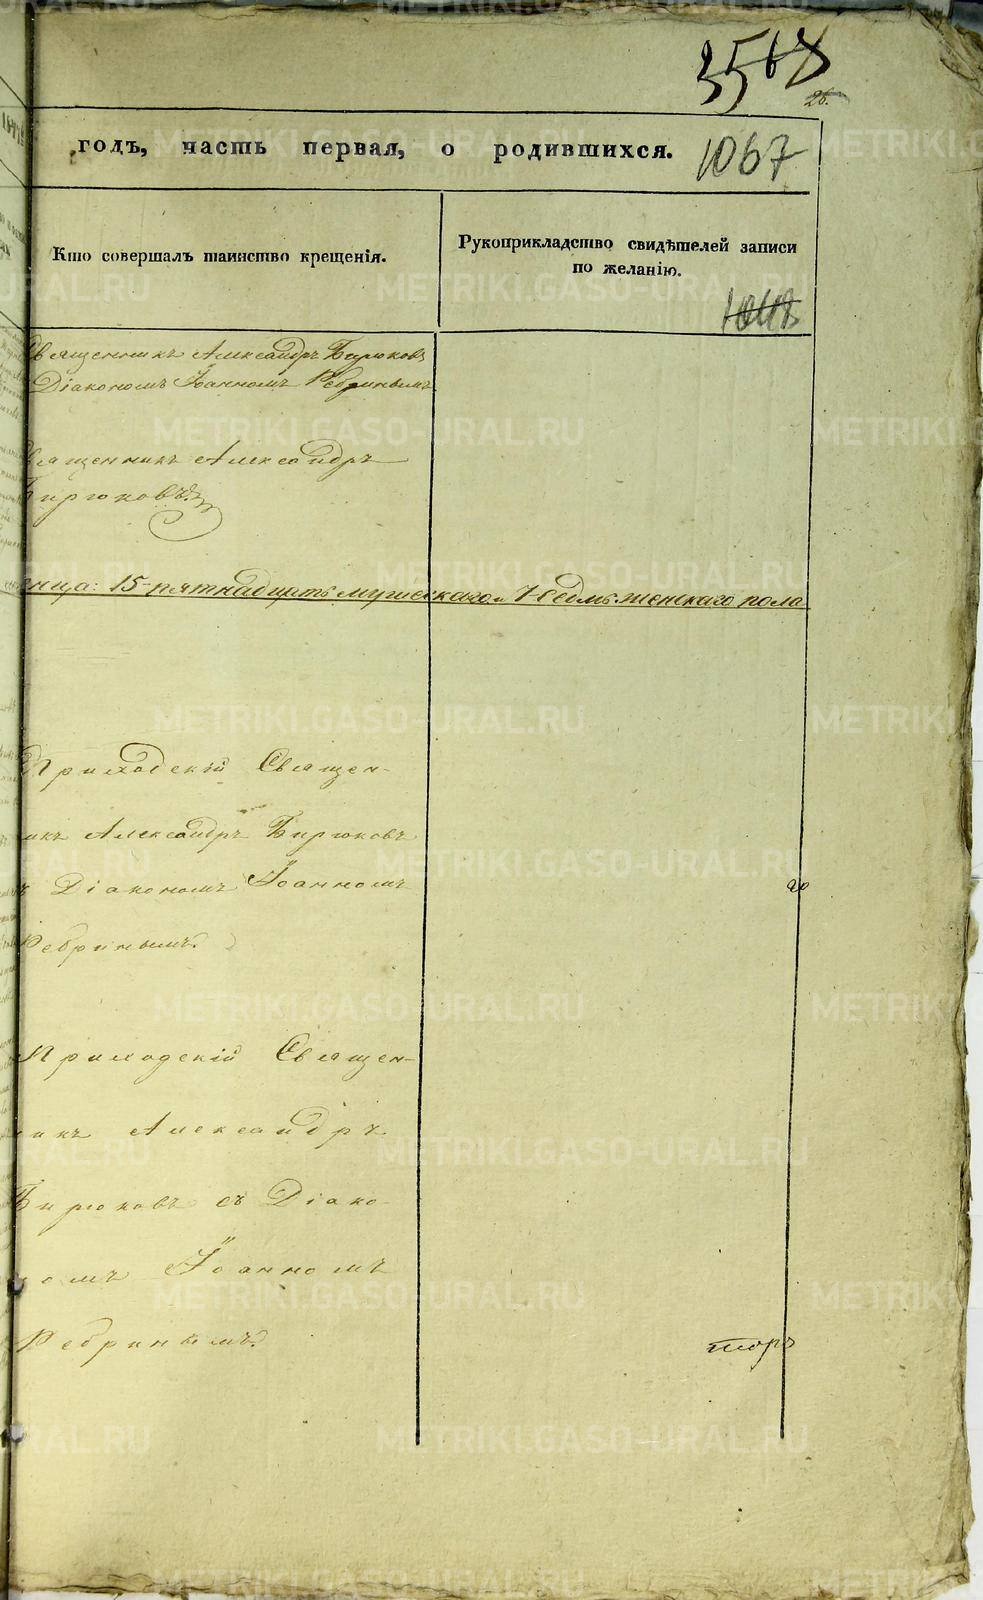 3567
26.
годъ, часть первая, о родившихся.
1067
Кто совершалъ таинство крещенія.
Рукоприкладство свидѣтелей записи
по желанію.
1048
Священникъ Александръ Бирюковъ
Діакономъ Іоанномъ Ребринымъ
Священникъ Александръ
Бирюковъ
енца: 15-пятнадцать мужескаго и 7-седмь женскаго пола
Приходскій Священ-
икъ Александръ Бирюковъ
ъ Діакономъ Іоанномъ
Ребринымъ.
Приходскій Священ-
икъ Александръ
Бирюковъ съ Діако-
омъ Іоанномъ
Ребринымъ.
торъ
METRIKI.GASO-URAL.RU